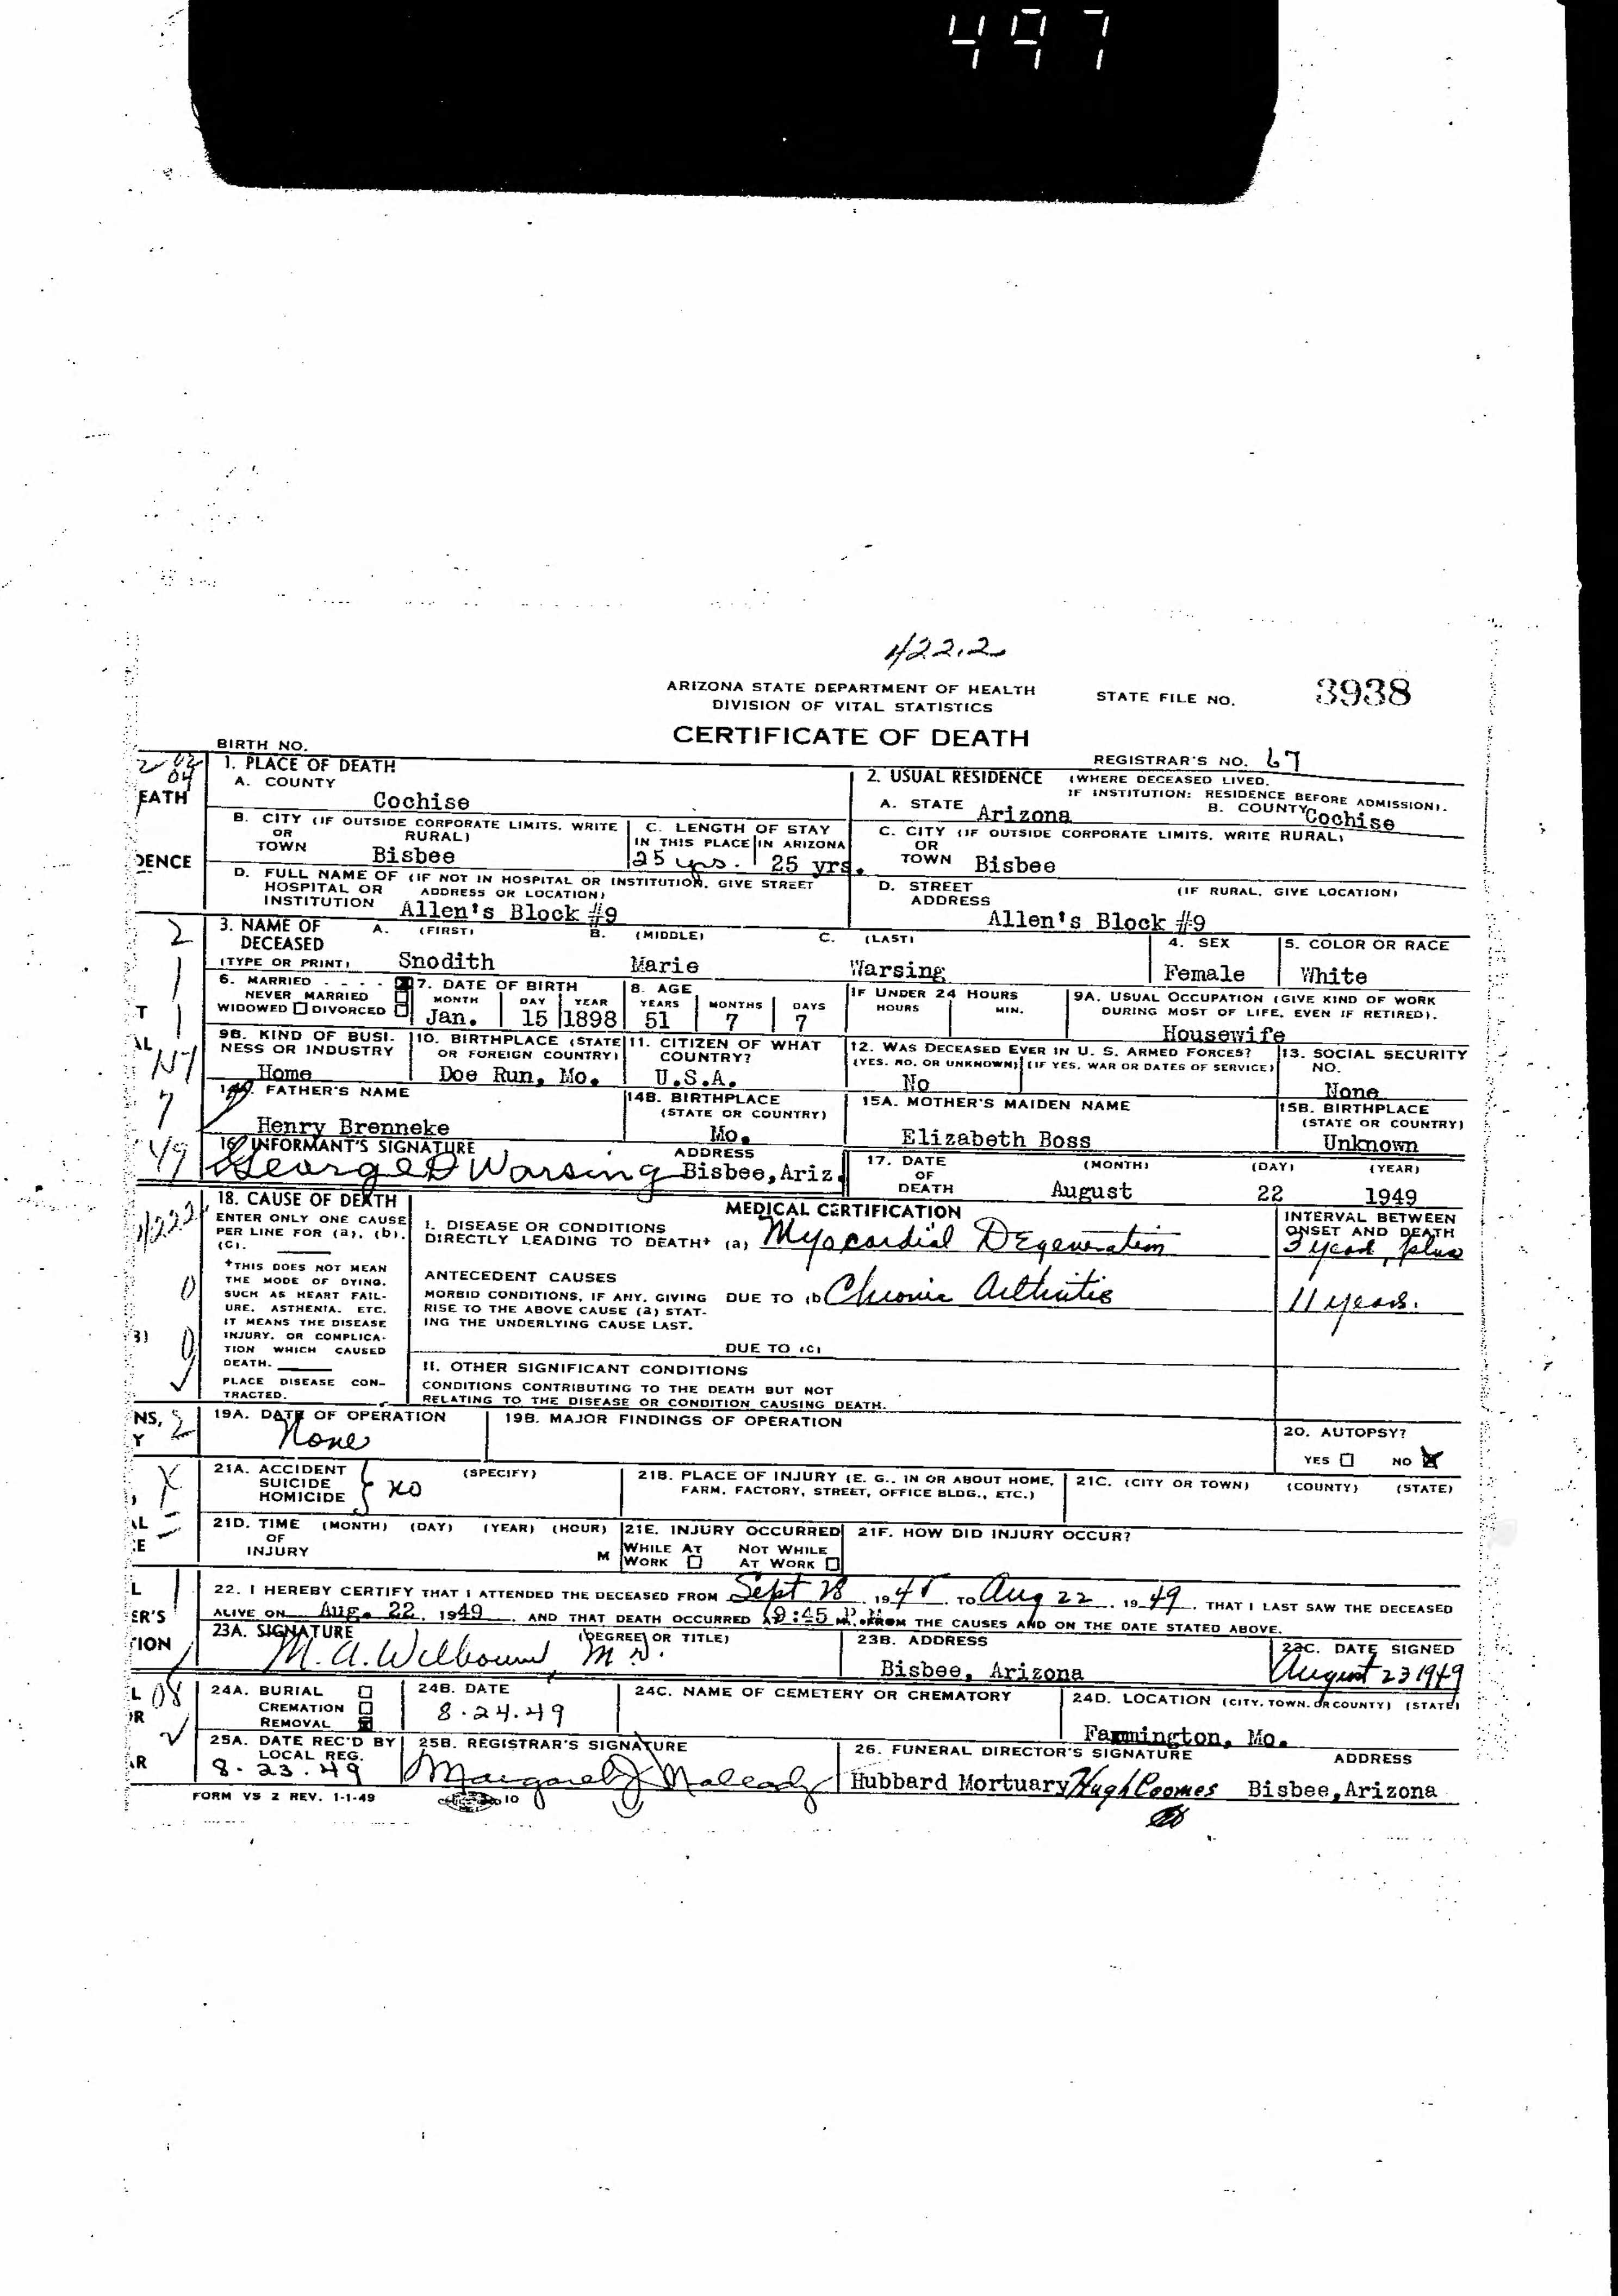 497
422.2
ARIZONA STATE DEPARTMENT OF HEALTH
DIVISION OF VITAL STATISTICS
STATE FILE NO. 3938
CERTIFICATE OF DEATH
BIRTH NO.
REGISTRAR'S NO. 67
1. PLACE OF DEATH
A. COUNTY
Cochise
2. USUAL RESIDENCE (WHERE DECEASED LIVED.
IF INSTITUTION: RESIDENCE BEFORE ADMISSION).
A. STATE Arizona B. COUNTY Cochise
B. CITY (IF OUTSIDE CORPORATE LIMITS, WRITE
OR RURAL)
TOWN Bisbee
C. LENGTH OF STAY
IN THIS PLACE IN ARIZONA
25 yrs. 25 yrs.
C. CITY (IF OUTSIDE CORPORATE LIMITS, WRITE RURAL)
OR
TOWN Bisbee
D. FULL NAME OF (IF NOT IN HOSPITAL OR INSTITUTION, GIVE STREET
HOSPITAL OR ADDRESS OR LOCATION)
INSTITUTION Allen's Block #9
D. STREET (IF RURAL, GIVE LOCATION)
ADDRESS
Allen's Block #9
3. NAME OF A. (FIRST) B. (MIDDLE) C. (LAST)
DECEASED
(TYPE OR PRINT) Snodith Marie Warsing
4. SEX
Female
5. COLOR OR RACE
White
6. MARRIED
NEVER MARRIED
WIDOWED DIVORCED
7. DATE OF BIRTH
MONTH DAY YEAR
Jan. 15 1898
8. AGE
YEARS MONTHS DAYS
51 7 7
IF UNDER 24 HOURS
HOURS MIN.
9A. USUAL OCCUPATION (GIVE KIND OF WORK
DURING MOST OF LIFE, EVEN IF RETIRED).
Housewife
9B. KIND OF BUSI-
NESS OR INDUSTRY
Home
10. BIRTHPLACE (STATE
OR FOREIGN COUNTRY)
Doe Run, Mo.
11. CITIZEN OF WHAT
COUNTRY?
U.S.A.
12. WAS DECEASED EVER IN U. S. ARMED FORCES?
(YES, NO, OR UNKNOWN) (IF YES, WAR OR DATES OF SERVICE)
No
13. SOCIAL SECURITY
NO.
None
FATHER'S NAME
Henry Brenneke
14B. BIRTHPLACE
(STATE OR COUNTRY)
Mo.
15A. MOTHER'S MAIDEN NAME
Elizabeth Boss
15B. BIRTHPLACE
(STATE OR COUNTRY)
Unknown
16. INFORMANT'S SIGNATURE ADDRESS
George D Warsing Bisbee, Ariz.
17. DATE (MONTH) (DAY) (YEAR)
OF
DEATH August 22 1949
18. CAUSE OF DEATH
ENTER ONLY ONE CAUSE
PER LINE FOR (a), (b),
(C).
*THIS DOES NOT MEAN
THE MODE OF DYING,
SUCH AS HEART FAIL-
URE, ASTHENIA, ETC.
IT MEANS THE DISEASE
INJURY, OR COMPLICA-
TION WHICH CAUSED
DEATH.
PLACE DISEASE CON-
TRACTED.
MEDICAL CERTIFICATION
INTERVAL BETWEEN
ONSET AND DEATH
I. DISEASE OR CONDITIONS
DIRECTLY LEADING TO DEATH* (a) Myocardial Degeneration 3 years plus
ANTECEDENT CAUSES
MORBID CONDITIONS, IF ANY, GIVING DUE TO (b) Chronic Arthritis 11 years.
RISE TO THE ABOVE CAUSE (a) STAT-
ING THE UNDERLYING CAUSE LAST.
DUE TO (C)
II. OTHER SIGNIFICANT CONDITIONS
CONDITIONS CONTRIBUTING TO THE DEATH BUT NOT
RELATING TO THE DISEASE OR CONDITION CAUSING DEATH.
19A. DATE OF OPERATION
None
19B. MAJOR FINDINGS OF OPERATION
20. AUTOPSY?
YES NO
21A. ACCIDENT (SPECIFY)
SUICIDE
HOMICIDE
no
21B. PLACE OF INJURY (E. G., IN OR ABOUT HOME,
FARM, FACTORY, STREET, OFFICE BLDG., ETC.)
21C. (CITY OR TOWN) (COUNTY) (STATE)
21D. TIME (MONTH) (DAY) (YEAR) (HOUR)
OF
INJURY M
21E. INJURY OCCURRED
WHILE AT NOT WHILE
WORK AT WORK
21F. HOW DID INJURY OCCUR?
22. I HEREBY CERTIFY THAT I ATTENDED THE DECEASED FROM Sept 19 TO Aug 22 1949, THAT I LAST SAW THE DECEASED
ALIVE ON Aug. 22, 1949, AND THAT DEATH OCCURRED 9:45 P.M. FROM THE CAUSES AND ON THE DATE STATED ABOVE.
23A. SIGNATURE (DEGREE OR TITLE)
M. A. Welbourn, M D.
23B. ADDRESS
Bisbee, Arizona
23C. DATE SIGNED
August 23 1949
24A. BURIAL
CREMATION
REMOVAL
24B. DATE
8.24.49
24C. NAME OF CEMETERY OR CREMATORY
24D. LOCATION (CITY, TOWN, OR COUNTY) (STATE)
Farmington, Mo.
25A. DATE REC'D BY
LOCAL REG.
8.23.49
25B. REGISTRAR'S SIGNATURE
Margaret J
26. FUNERAL DIRECTOR'S SIGNATURE ADDRESS
Hubbard Mortuary Hugh Coomes Bisbee, Arizona
FORM VS 2 REV. 1-1-49